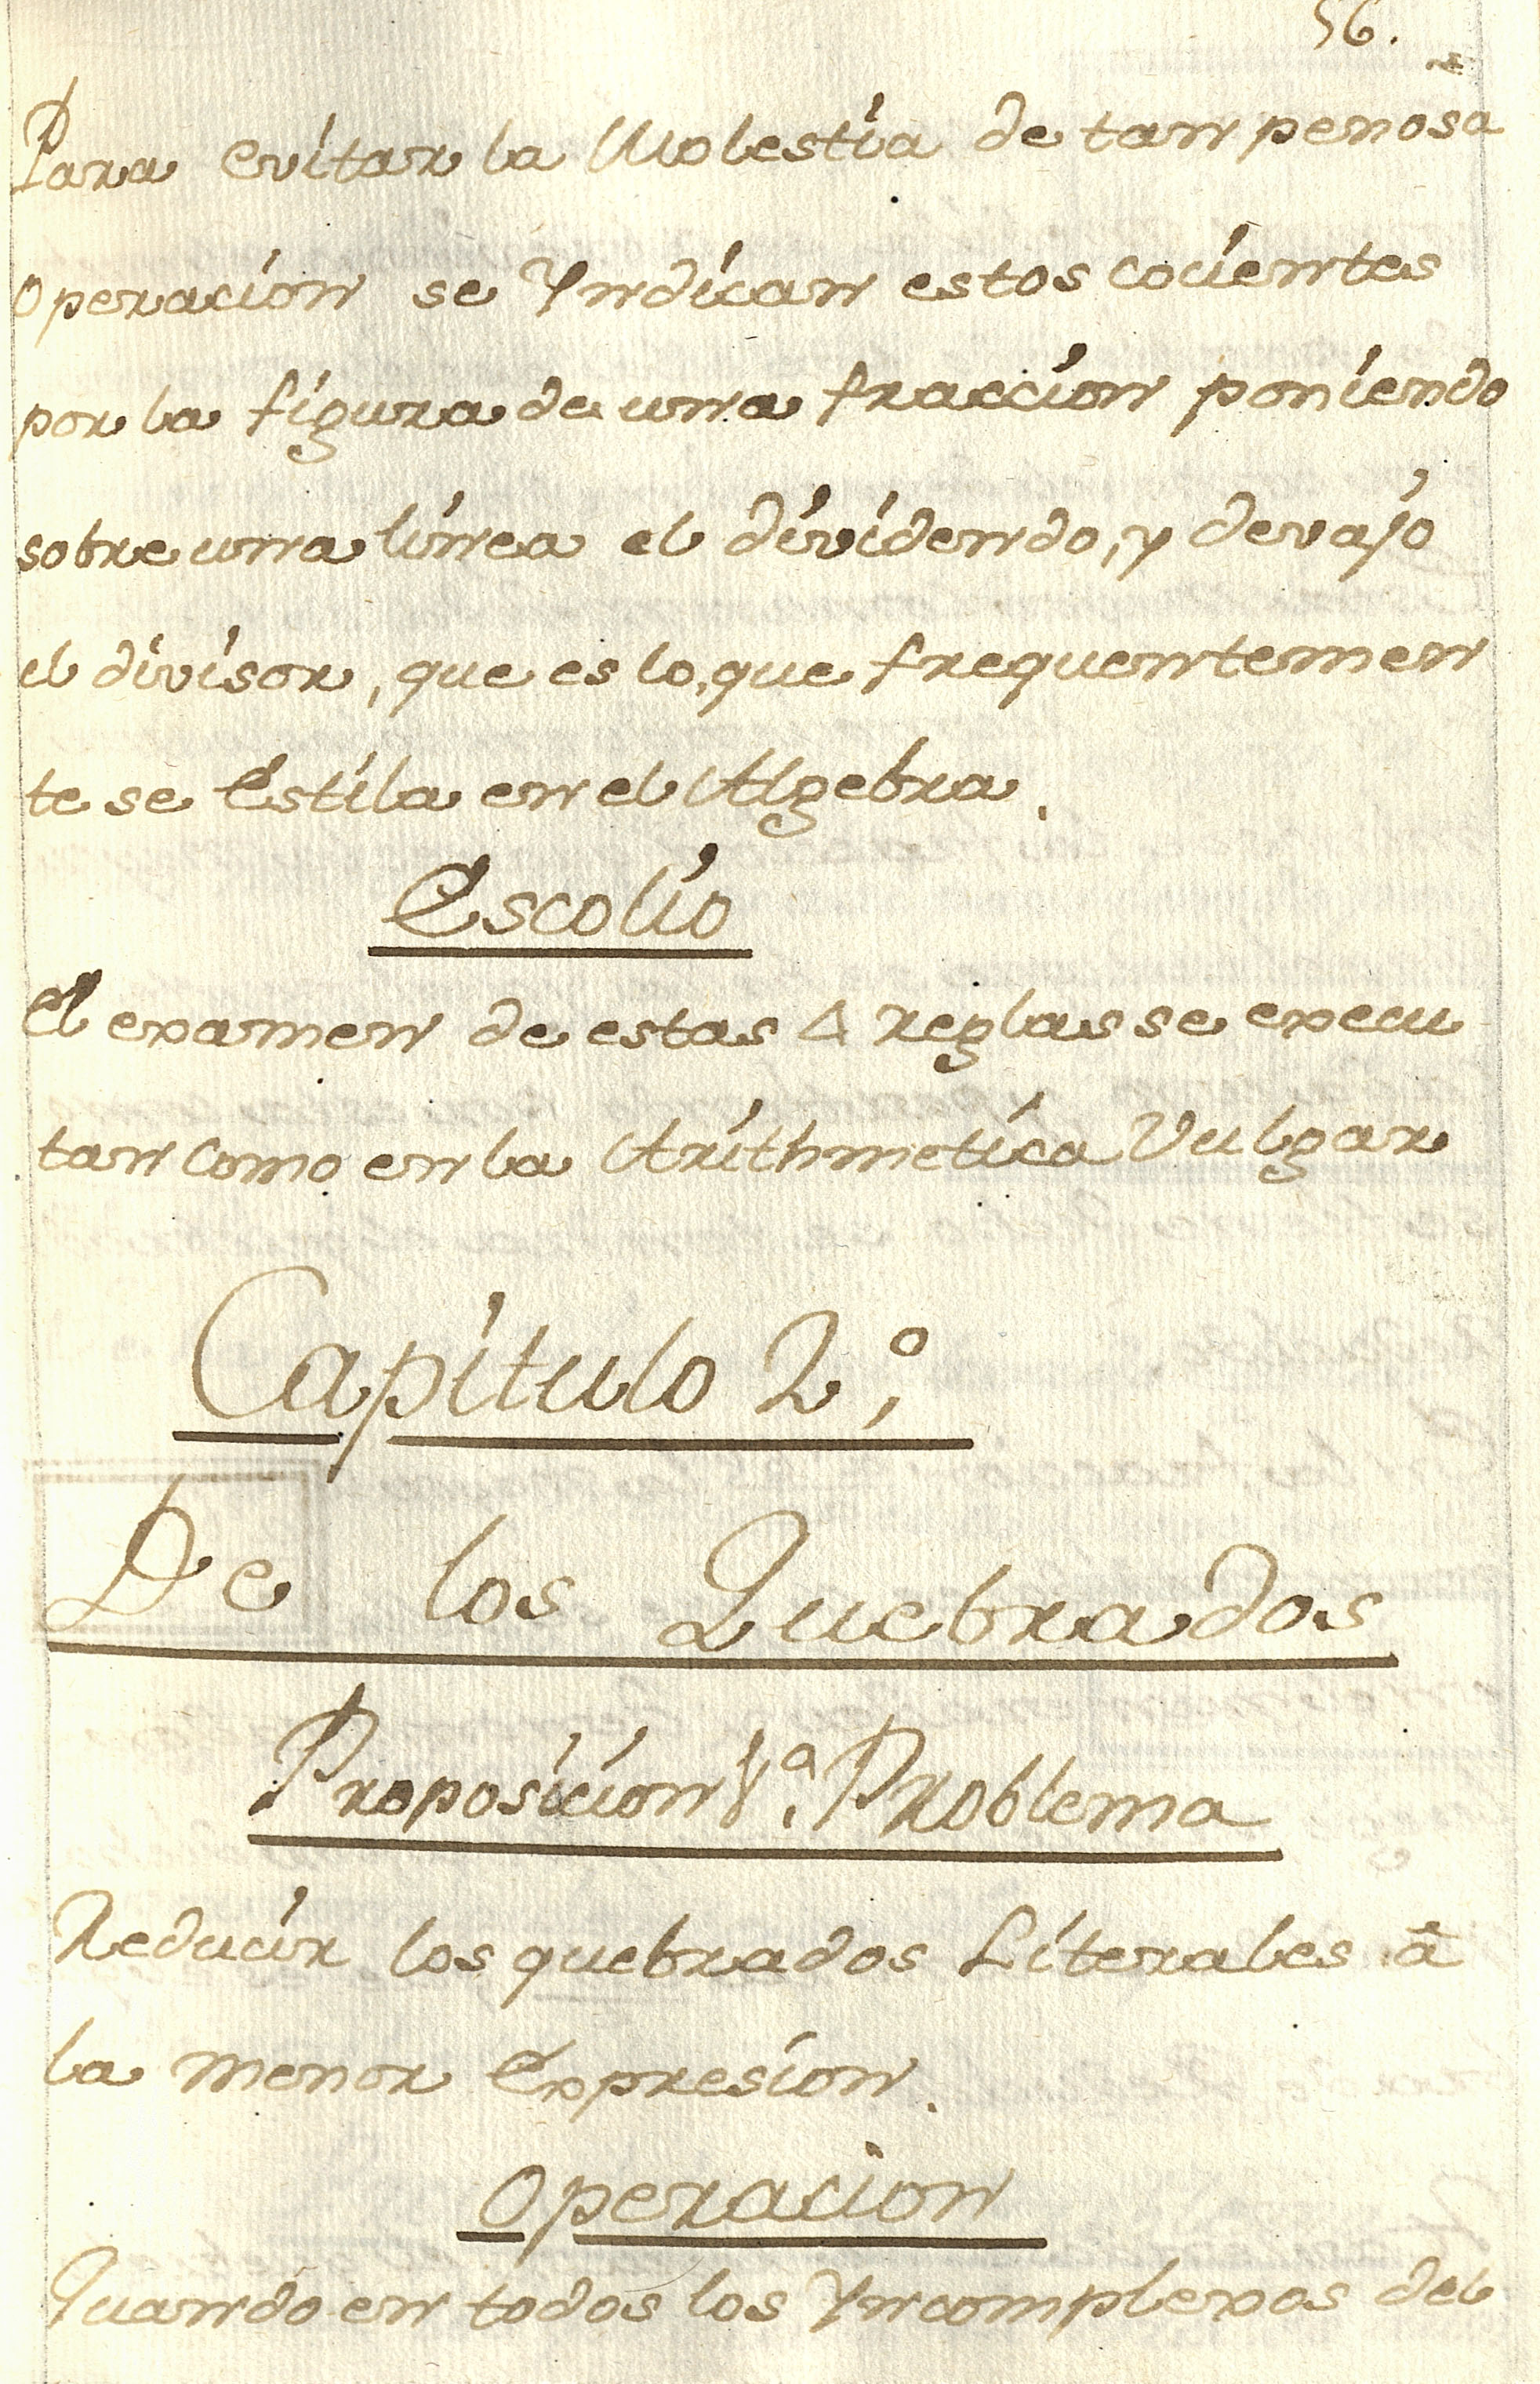 56.
Para evitar la Molestia de tan penosa
operacion se Yndican estos cocientes
por la figura de una fraccion poniendo
sobre una linea el dividendo, y devajo
el divisor, que es lo, que frequentemen
te se Estila en el Algebra.
Escolio
El examen de estas 4 reglas se execu
tan como en la Arithmetica Vulgar
Capitulo 2º,
De los Quebrados
Proposicion 1ª. Problema
Reducir los quebrados Literales â
la menor Expresion.
Operacion
Quando en todos los Yncomplexos del